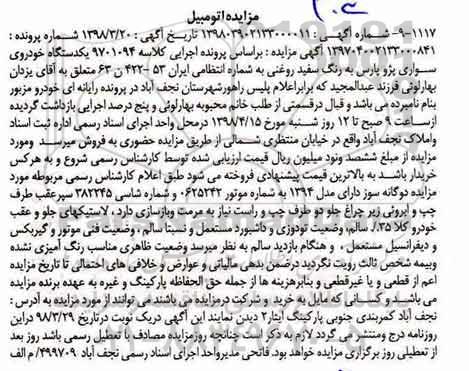 مزایده اتومبیل
۱۱۱۷-۹- شماره آگهی : ۱۳۹۸۰۳۹۰۲۱۳۳۰۰۰۰۱۱ تاریخ آگهی : ۱۳۹۸/۳/۲۰ شماره پرونده :
۱۳۹۷۰۴۰۰۲۱۳۳۰۰۰۸۴۱ آگهی مزایده : براساس پرونده اجرایی کلاسه ۹۷۰۱۰۹۴ یکدستگاه خودروی
سواری پژو پارس به رنگ سفید روغنی به شماره انتظامی ایران ۵۳ – ۴۲۲ ن ۶۳ متعلق به آقای یزدان
بهارلوئی فرزند عبدالمجید که برابراعلام پلیس راهورشهرستان نجف آباد در پرونده رایانه ای خودرو مزبور
بنام نامبرده می باشد و قبال درقسمتی از طلب خانم محبوبه بهارلوئی و پنج درصد اجرایی بازداشت گردیده
ازساعت ۹ صبح تا ۱۲ روز شنبه مورخ ۱۳۹۸/۴/۱۵ درمحل واحد اجرای اسناد رسمی اداره ثبت اسناد
واملاک نجف آباد واقع در خیابان منتظری شمالی از طریق مزایده حضوری به فروش میرسد ومورد
مزایده از مبلغ ششصد ونود میلیون ریال قیمت ارزیابی شده توسط کارشناس رسمی شروع و به هرکس
خریدار باشد به بالاترین قیمت پیشنهادی فروخته می شود طبق اعلام کارشناس رسمی مربوطه مورد
مزایده دوگانه سوز دارای مدل ۱۳۹۴ به شماره موتور ۰۶۲۵۲۴۲ و شماره شاسی ۳۸۲۲۴۵ سپرعقب طرف
چپ و ابروئی زیر چراغ جلو دو طرف چپ و راست نیاز به مرمت وبازسازی دارد ، لاستیکهای جلو و عقب
خودرو کلا ۳۵٪، سالم، وضعیت تودوزی و داشبورد مستعمل و نسبتا سالم ، وضعیت فنی موتور و گیربکس
و دیفرانسیل مستعمل ، و هنگام بازدید سالم به نظر میرسد وضعیت ظاهری مناسب رنگ آمیزی نشده
وبیمه شخص ثالث رویت نگردید درضمن بدهی مالیاتی و عوارض و خلافی های احتمالی تا تاریخ مزایده
اعم از قطعی و یا غیرقطعی و بنابرهزینه ها از جمله حق الحفاظه پارکینگ و غیره به عهده برنده مزایده
می باشند و کسانی که مایل به خرید و شرکت درمزایده می باشند می توانند از مورد مزایده به آدرس :
نجف آباد کمربندی جنوبی پارکینگ ایثار۲ دیدن نمایند این آگهی دریک نوبت درتاریخ ۹۸/۳/۲۹ دراین
روزنامه درج ومنتشر می گردد لازم به ذکر است چنانچه روزمزایده مصادف با تعطیل رسمی باشد روز بعد
از تعطیلی روز برگزاری مزایده خواهد بود. فاتحی مدیرواحد اجرای اسناد رسمی نجف آباد ۴۹۹۷۰۹/ م الف